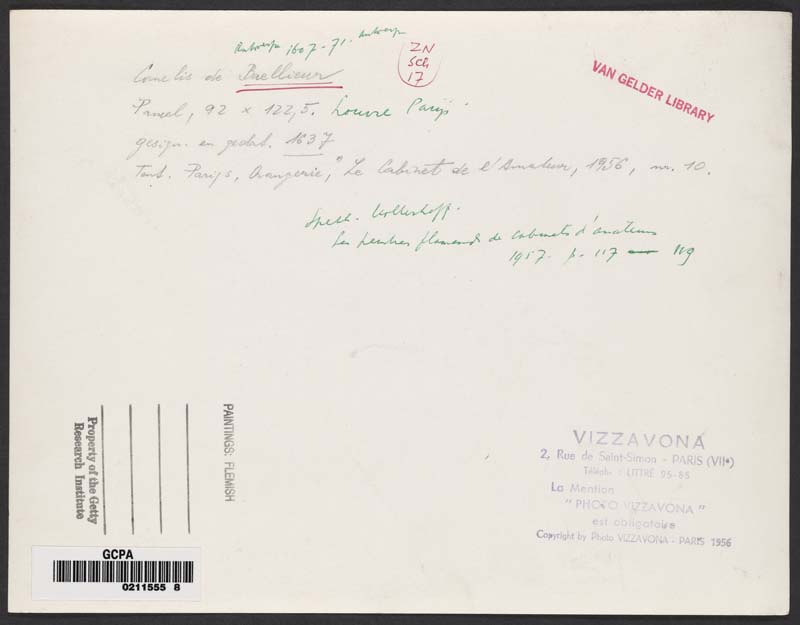 Antwerp 1607-71. Antwerp
ZN
SCH,
17
Cornelis de Baellieur
Paneel, 92 x 122,5. Louvre Parijs.
gesign. en gedat. 1637
Tent. Parijs, Orangerie, "Le Cabinet de l'Amateur, 1956, nr. 10.
VAN GELDER LIBRARY
Speth-Holterhoff.
Les peintres flamands de cabinets d'amateurs
1957. p. 117 — 119
Property of the Getty
Research Institute
PAINTINGS: FLEMISH
GCPA
0211555 8
VIZZAVONA
2, Rue de Saint-Simon - PARIS (VIIe)
Téléph. : LITTRÉ 95-85
La Mention
"PHOTO VIZZAVONA"
est obligatoire
Copyright by Photo VIZZAVONA - PARIS 1956